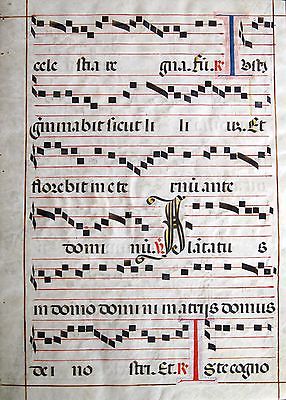 cele stia re gna. Eū. ℟ Iustꝰ
gminabit sicut li li uꝫ. Et
florebit in e te rnū ante
domi nū. ℣ Plātatu s
in domo domi ni in atrijs domus
de i no stri. Et. ℟ Iste cogno